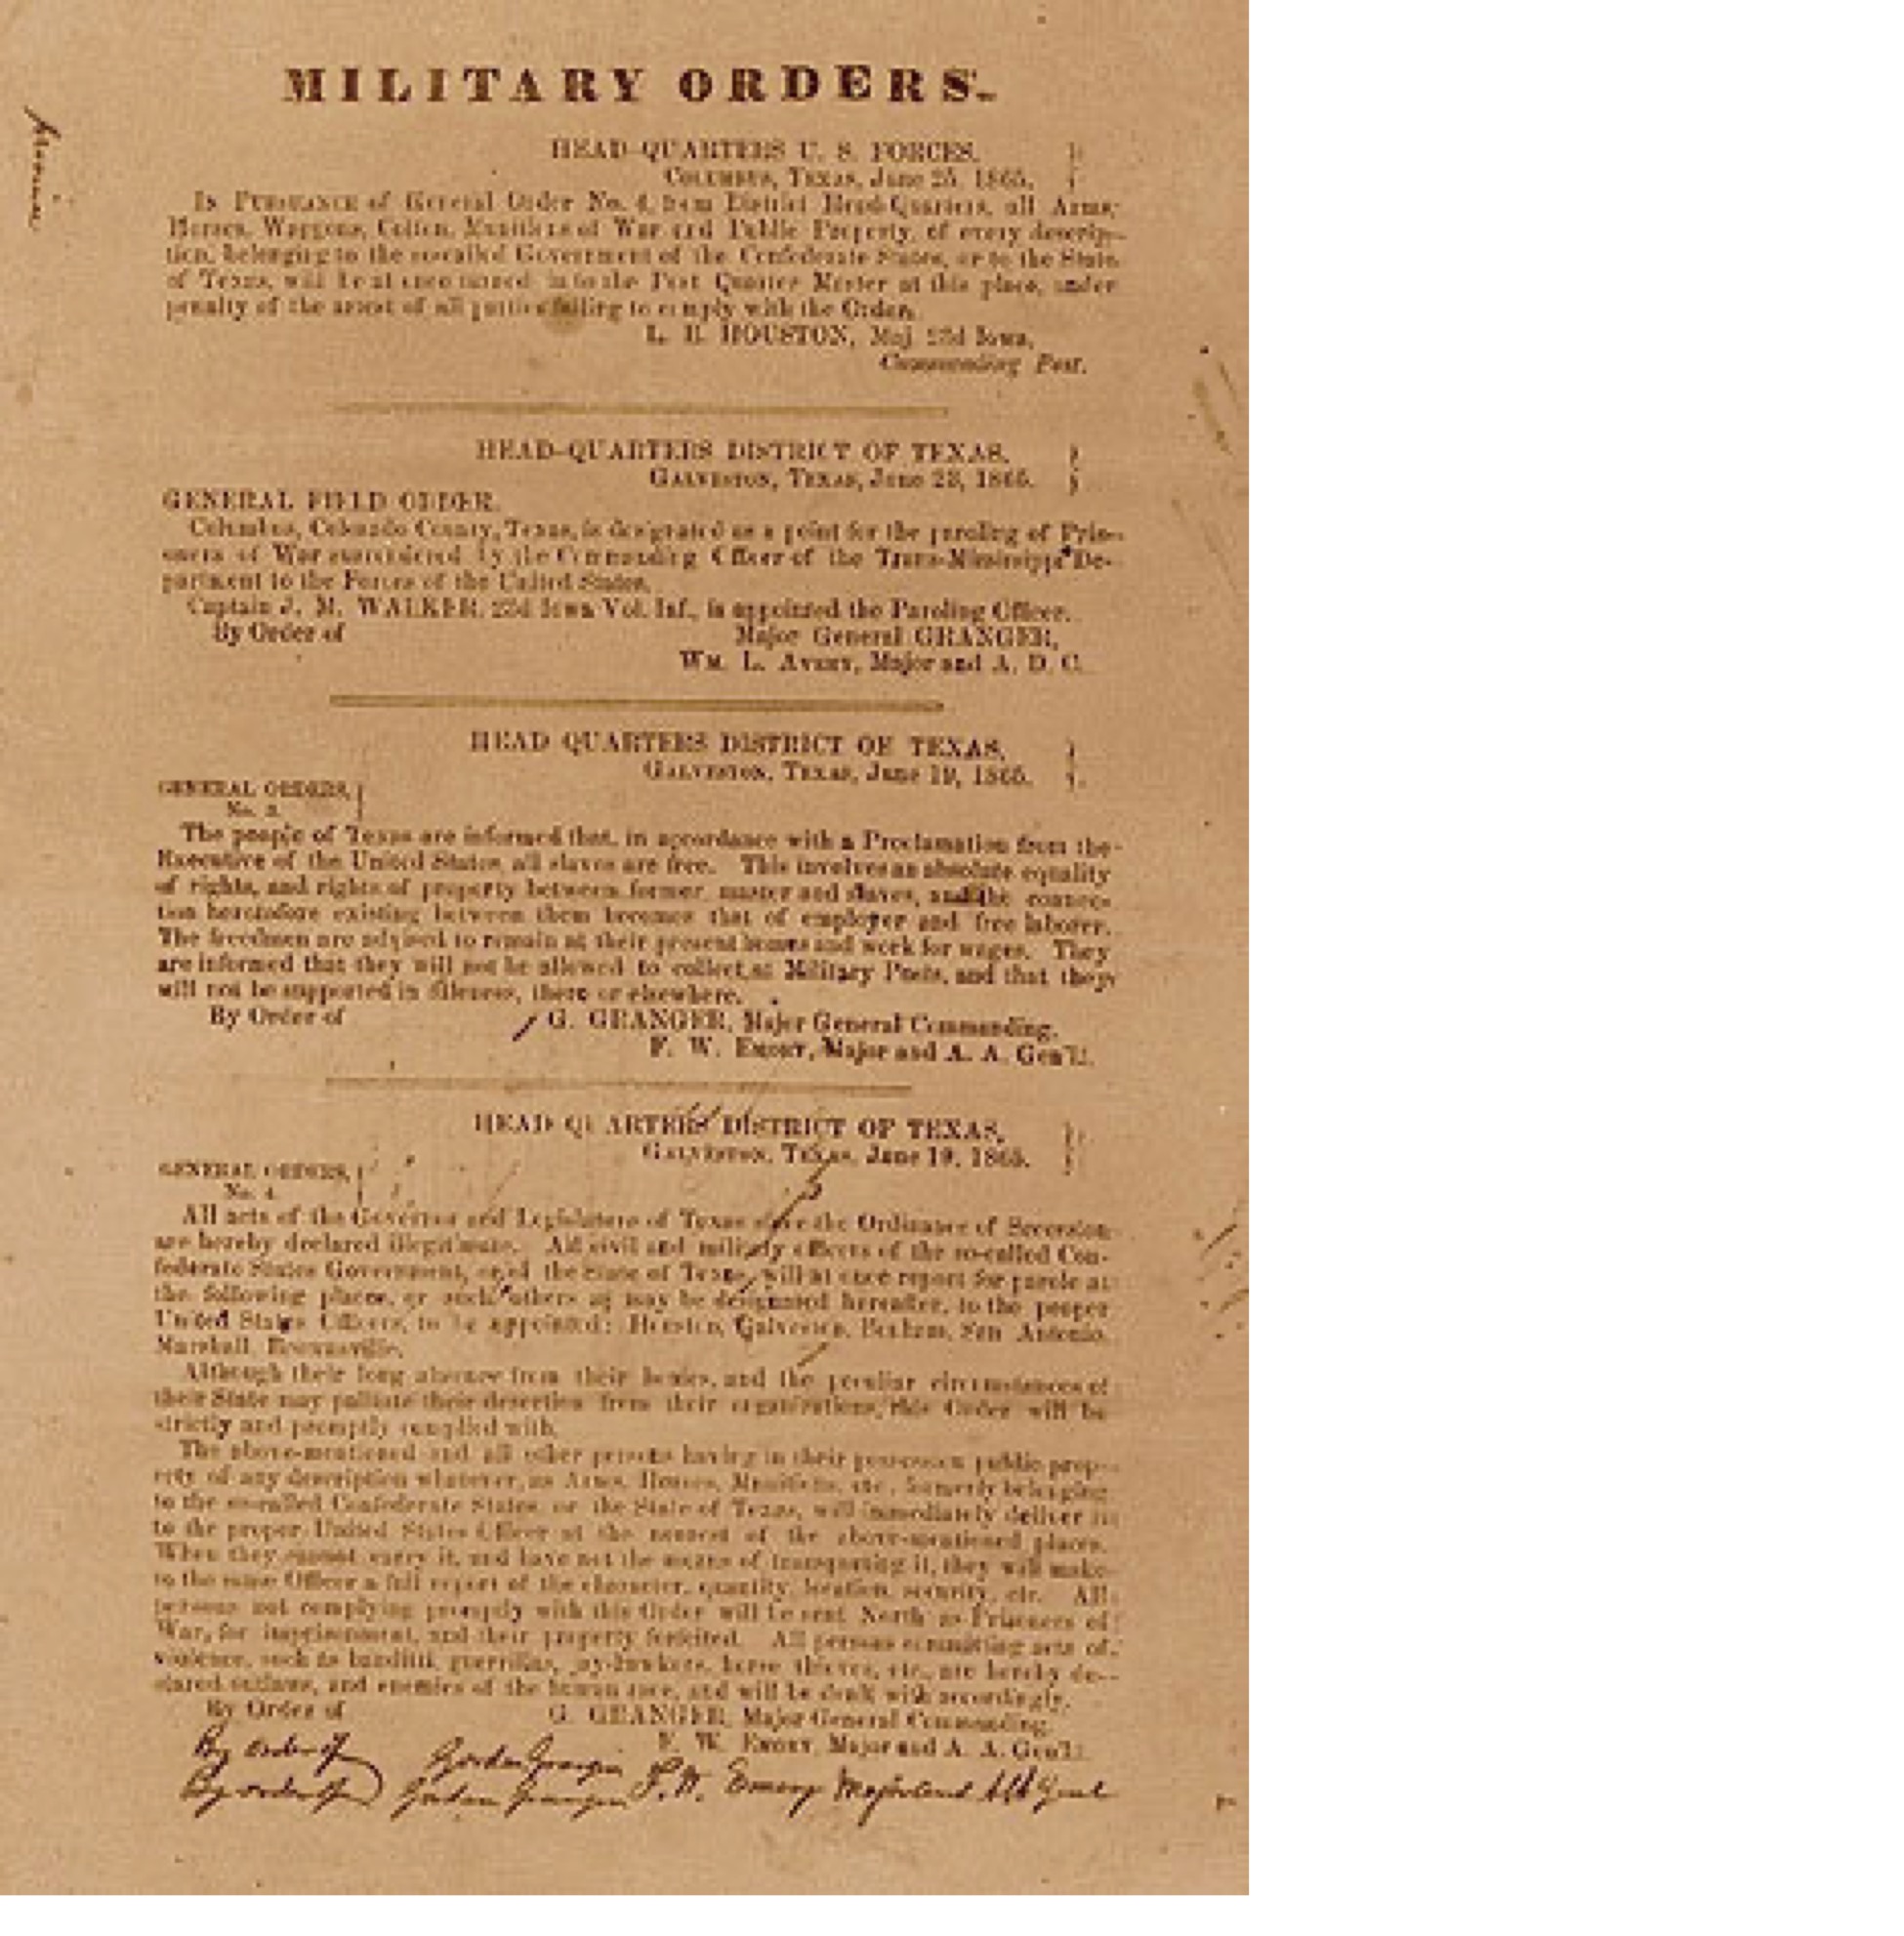 MILITARY ORDERS.
HEAD-QUARTERS U. S. FORCES,
COLUMBUS, TEXAS, June 25, 1865.
IN PURSUANCE of General Order No. 4, from District Head-Quarters, all Arms,
Horses, Waggons, Cotton, Munitions of War and Public Property, of every descrip-
tion, belonging to the so-called Government of the Confederate States, or to the State
of Texas, will be at once turned in to the Post Quarter Master at this place, under
penalty of the arrest of all parties failing to comply with the Order.
HOUSTON, Maj. 23d Iowa,
Commanding Post.
HEAD-QUARTERS DISTRICT OF TEXAS,
GALVESTON, TEXAS, June 23, 1865.
GENERAL FIELD ORDER.
Columbus, Colorado County, Texas, is designated as a point for the paroling of Pris-
oners of War surrendered by the Commanding Officer of the Trans-Mississippi De-
partment to the Forces of the United States.
Captain J. M. WALKER, 23d Iowa Vol. Inf., is appointed the Paroling Officer.
By Order of Major General GRANGER,
WM. L. AVERY, Major and A. D. C.
HEAD QUARTERS DISTRICT OF TEXAS,
GALVESTON, TEXAS, June 19, 1865.
GENERAL ORDERS,
No. 3.
The people of Texas are informed that, in accordance with a Proclamation from the
Executive of the United States, all slaves are free. This involves an absolute equality
of rights, and rights of property between former master and slaves, and the connec-
tion heretofore existing between them becomes that of employer and free laborer.
The freedmen are advised to remain at their present homes and work for wages. They
are informed that they will not be allowed to collect at Military Posts, and that they
will not be supported in idleness, there or elsewhere.
By Order of G. GRANGER, Major General Commanding.
F. W. EMORY, Major and A. A. Gen'l.
HEAD QUARTERS DISTRICT OF TEXAS,
GALVESTON, TEXAS, June 19, 1865.
GENERAL ORDERS,
No. 4.
All acts of the Governor and Legislature of Texas since the Ordinance of Secession
are hereby declared illegitimate. All civil and military officers of the so-called Con-
federate States Government, or of the State of Texas, will at once report for parole at
the following places, or such others as may be designated hereafter, to the proper
United States Officers, to be appointed: Houston, Galveston, Bonham, San Antonio,
Marshall, Brownsville.
Although their long absence from their homes, and the peculiar circumstances of
their State may palliate their desertion from their organizations, this Order will be
strictly and promptly complied with.
The above-mentioned and all other persons having in their possession public prop-
erty of any description whatever, as Arms, Horses, Munitions, etc., formerly belonging
to the so-called Confederate States, or the State of Texas, will immediately deliver it
to the proper United States Officer at the nearest of the above-mentioned places.
When they cannot carry it, and have not the means of transporting it, they will make
to the same Officer a full report of the character, quantity, location, security, etc. All
persons not complying promptly with this Order will be sent North as Prisoners of
War, for imprisonment, and their property forfeited. All persons committing acts of
violence, such as banditti, guerrillas, jay-hawkers, horse thieves, etc., are hereby de-
clared outlaws, and enemies of the human race, and will be dealt with accordingly.
By Order of G. GRANGER, Major General Commanding.
F. W. EMORY, Major and A. A. Gen'l.
By order of Gordon Granger
By order of Gordon Granger F. W. Emory Major and A A Genl